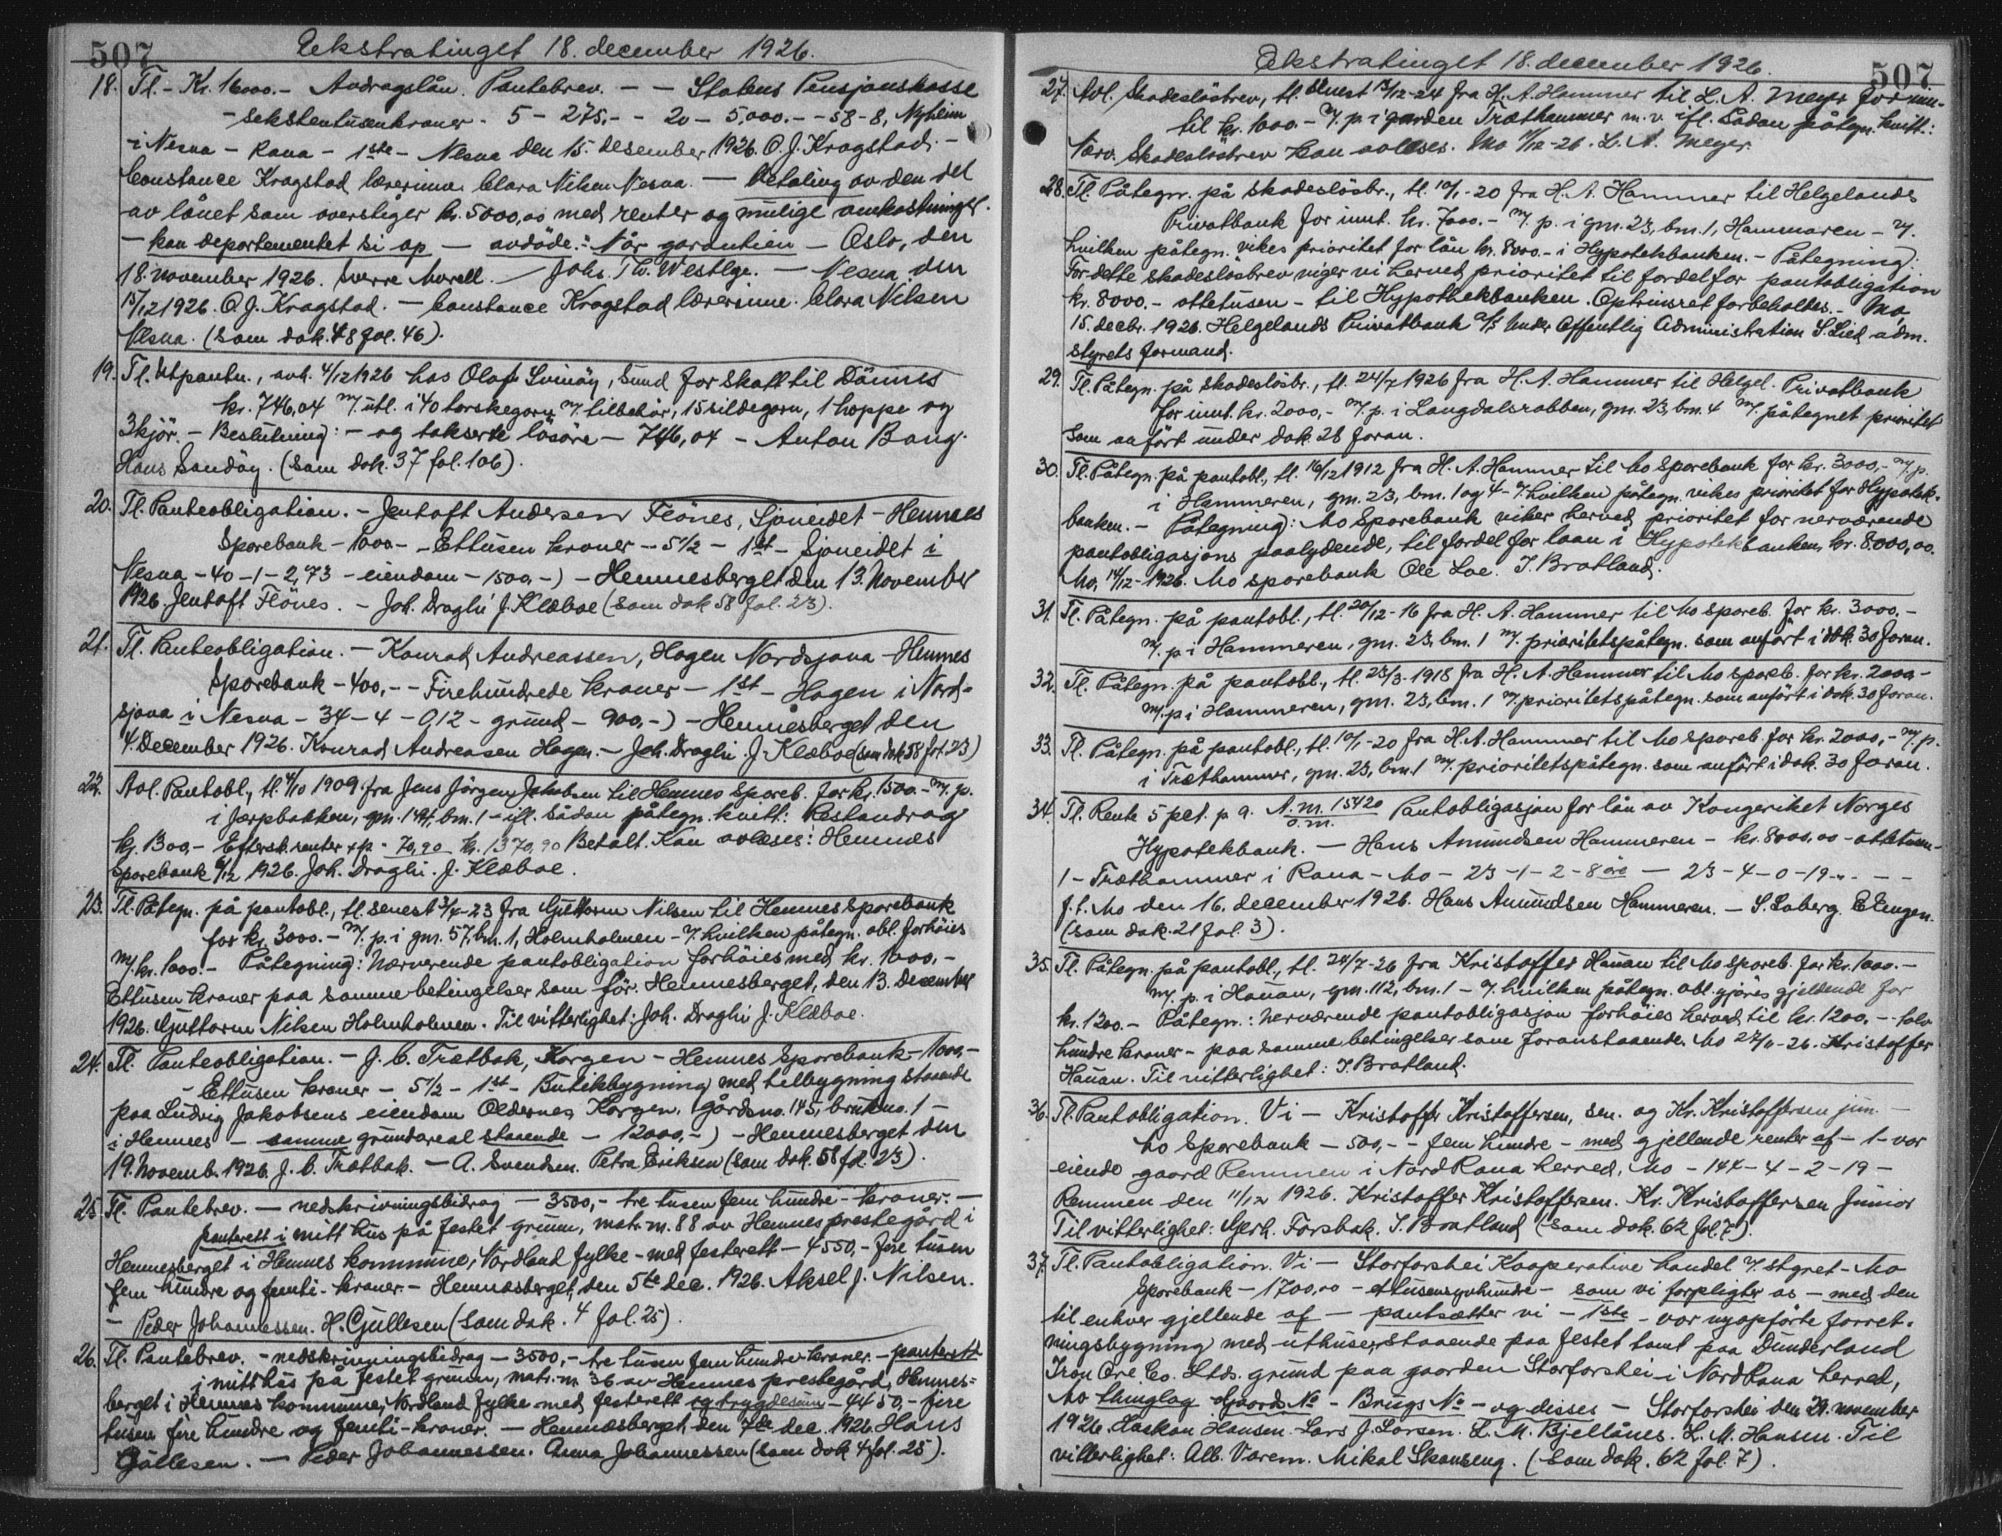 507
Ekstratinget 18. december 1926.
18. Tl. - Kr. 16000.- Avdragslån. Pantebrev. - - Statens Pensjonskasse
- sekstentusenkroner - 5 - 275,- - 20 - 5,000.- - 58 - 8, Nyheim
- i Nesna - Rana - 1ste - Nesna den 15. desember 1926. O. J. Kragstad. -
Constance Kragstad lærerinne. Clara Nilsen Nesna. - betaling av den del
av lånet som overstiger kr. 5000,00 med renter og mulige omkostninger.
- kan departementet si op - avdöde. : Når garantien - Oslo, den
18. november 1926. Sverre Morell. - Johs. Th. Westlye. - Nesna den
15/12 1926. O. J. Kragstad. - Constance Kragstad lærerinne. Clara Nilsen
Nesna. (som dok. 48 fol. 46).
19. Tl. Utpantn., avh. 4/12 1926 hos Olaf Svinöy, Sund for skatt til Dönnes
kr. 746,04 m/. utl. i 40 torskegarn m/. tilbehör, 15 sildegarn, 1 hoppe og
3 kjör. - Beslutning: - og takserte lösöre - 746,04 - Anton Bang.
Hans Sandöy. (som dok. 37 fol. 106).
20. Tl. Panteobligation. - Jentoft Andersen Flönes, Sjoneidet - Hemnes
Sparebank - 1000 - - Ettusen kroner - 5½ - 1st - Sjoneidet i
Nesna - 40 - 1 - 2,73 - eiendom - 1500,-) - Hemnesberget den 13. November
1926. Jentoft Flönes. - Joh. Draglii J. Klæboe (som dok 58 fol. 23).
21. Tl. Panteobligation. - Konrad Andreassen, Hagen Nordsjona - Hemnes
Sparebank - 400,- - Firehundrede kroner - 1st - Hagen i Nord-
sjona i Nesna - 34 - 4 - 0,12 - grund - 900,-) - Hemnesberget den
4. December 1926. Konrad Andreasen Hagen. - Joh. Draglii J. Klæboe (som dok 58 fol. 23)
22. Avl. Pantobl., tl. 4/10 1909 fra Jens Jörgen Jakobsen til Hemnes spareb. for kr. 1500.- m/. p.
i Jærpbakken, gm. 144, bm. 1 - ifl. sådan påtegn. kvitt: Restandrag
kr. 1300,- Eftersk. renter + p. 70,90 kr. 1370,90 Betalt. Kan avlæses: Hemnes
Sparebank 6/12 1926. Joh. Draglii. J. Klæboe.
23. Tl. Påtegn. på pantobl., tl. senest 3/4-23 fra Guttorm Nilsen til Hemnes Sparebank
for kr. 3000.- m/. p. i gm. 57, bm. 1, Holmholmen - v/. hvilken påtegn. obl. forhöies
m/. kr. 1000.- Påtegning: Nærværende pantobligation forhöies med kr. 1000,-
Ettusen kroner paa samme betingelser som för. Hemnesberget, den 13. December
1926. Guttorm Nilsen Holmholmen. Til vitterlighet: Joh. Draglii J. Klæboe.
24. Tl. Panteobligation. - J. C. Trætbak, Korgen - Hemnes Sparebank - 1000,-
- Ettusen kroner - 5½ - 1st - Butikbygning med tilbygning staaende
paa Ludvig Jakobsens eiendom Oldernes Korgen. Gårdsno. 145, bruksno. 1 -
i Hemnes - samme grundareal staaende - 12000,-) - Hemnesberget den
19. Novemb. 1926. J. C. Trætbak. - A. Svendsen. Petra Eriksen (som dok. 58 fol. 23).
25. Tl. Pantebrev. - nedskrivningsbidrag - 3500,- tre tusen fem hundre - kroner. -
panterett i mitt hus på festet grunn, matr. nr. 88 av Hemnes prestegård i
Hemnesberget i Hemnes kommune, Nordland fylke - med festerett - 4550,- fire tusen
fem hundre og femti - kroner. - Hemnesberget, den 5te dec. 1926. Aksel J. Nilsen.
- Peder Johannessen. H. Gjullesen (som dok. 4 fol. 25).
26. Tl. Pantebrev. - nedskrivningsbidrag - 3500,- tre tusen fem hundre kroner. - panterett
i mitt hus på festet grunn, matr. nr 36 av Hemnes prestegård, Hemnes-
berget i Hemnes kommune, Nordland fylke med festerett og trygdesum - 4450,- fire
tusen fire hundre og femti - kroner. - Hemnesberget, den 7de dec. 1926. Hans
Gjullesen. - Peder Johannessen. Anna Johannessen (som dok 4 fol. 25).
507
Ekstratinget 18. december 1926.
27. Avl. Skadeslösbrev, tl. senest 13/12-24 fra H. A. Hammer til L. A. Meyer for inn-
til kr. 1000.- m/. p. i garden Træthammer m. v. ifl. sådan påtegn. kvitt.:
Nærv. skadeslösbrev kan avleses. Mo 11/12-26. L. A. Meyer.
28. Tl. Påtegn. på skadeslösbr., tl. 10/1-20 fra H. A. Hammer til Helgelands
Privatbank for innt. kr. 7000.- m/. p. i gm. 23, bm. 1, Hammeren - v/.
hvilken påtegn. vikes prioritet for lån kr. 8000.- i Hypotekbanken. - Påtegning:
For dette skadeslösbrev viger vi herved prioritet til fordel for pantobligation
kr. 8000.- ottetusen - til Hypothekbanken. Optrinsret forbeholdes. - Mo,
15. decbr. 1926. Helgelands Privatbank A/S Under Offentlig Administration S. Lied adm.
styrets formand.
29. Tl. Påtegn. på skadeslösbr., tl. 24/7 1926 fra H. A. Hammer til Helgel. Privatbank
for innt. kr. 2000,- m/. p. i Langdalsrabben, gm. 23, bm. 4 m/. påtegnet prioritet
som anfört under dok 28 foran.
30. Tl. Påtegn. på pantobl., tl. 16/12 1912 fra H. A. Hammer til Mo Sparebank for kr. 3000,- m/. p.
i Hammeren, gm. 23, bm. 1 og 4 - v/. hvilken påtegn. vikes prioritet for Hypotek-
banken. - Påtegning: Mo Sparebank viker herved prioritet for nerværende
pantobligasjons paalydende, til fordel for laan i Hypotekbanken, kr. 8.000,00.
Mo, 14/12-1926. Mo sparebank Ole Loe. I. Bratland.
31. Tl. Påtegn. på pantobl., tl. 20/12-16 fra H. A. Hammer til Mo Spareb. for kr. 3000,-
m/. p. i Hammeren, gm. 23, bm. 1 m/. prioritetspåtegn. som anfört i dok. 30 foran.
32. Tl. Påtegn. på pantobl., tl. 23/3-1918 fra H. A. Hammer til Mo Spareb. for kr. 2000,-
m/. p. i Hammeren, gm. 23, bm. 1 m/. prioritetspåtegn. som anfört i dok. 30 foran.
33. Tl. Påtegn. på pantobl., tl. 10/1-20 fra H. A. Hammer til Mo Spareb. for kr. 2000,- m/. p.
i Træthammer, gm. 23, bm. 1 m/. prioritetspåtegn. som anfört i dok. 30 foran.
34. Tl. Rente 5 pct. p. a. A. m. 15420 Pantobligasjon for lån av Kongeriket Norges
o. m.
Hypotekbank. - Hans Amundsen Hammeren - kr. 8000,00 - ottetusen -
1 - Træthammer i Rana - Mo - 23 - 1 - 2 - 8 öre - 23 - 4 - 0 - 19 - - -
f. t. Mo den 16. december 1926. Hans Amundsen Hammeren. - S. Laberg. E. Engen.
(som dok. 21 fol. 3).
35. Tl. Påtegn. på pantobl., tl. 24/7-26 fra Kristoffer Hauan til Mo spareb. for kr. 1000.-
m/. p. i Hauan, gm. 112, bm. 1 - v/. hvilken påtegn. obl. gjöres gjeldende for
kr. 1200.- Påtegn.: Nerværende pantobligasjon forhöies herved til kr. 1200,- - tolv
hundre kroner - paa samme betingelser som foranstaaende. Mo 27/11-26. Kristoffer
Hauan. Til vitterlighet: I. Bratland.
36. Tl. Pantobligation. Vi - Kristoffer Kristoffersen, sen. og Kr. Kristoffersen jun. -
Mo Sparebank - 500,- - fem hundre - med gjellende renter af - 1 - vor
eiende gaard Remmen i Nord Rana herred, Mo - 144 - 4 - 2 - 19 -
Remmen den 11/12 1926. Kristoffer Kristoffersen. Kr. Kristoffersen Junior
Til vitterlighet: Gerh. Forsbak. I. Bratland (som dok. 62 fol. 7).
37. Tl. Pantobligation. Vi - Storforshei Kooperative handel v/. styret - Mo
Sparebank - 1700,00 - ettusensyvhundre - som vi forpligter os - med den
til enhver gjellende af - pantsætter vi - 1ste - vor nyopförte forret-
ningsbygning med uthuser, staaende paa festet tomt paa Dunderland
Iron Ore Co. Ltds. grund paa gaarden Storforshei i Nord Rana herred,
Mo thinglag Gaards No - Brugs No - og disses - Storforshei den 29. november
1926. Haakon Hansen. Lars J. Larsen. L. M. Bjellånes. L. M. Hansen. Til
vitterlighet: Alb. Varem. Mikal Skanseng. (som dok. 62 fol. 7).